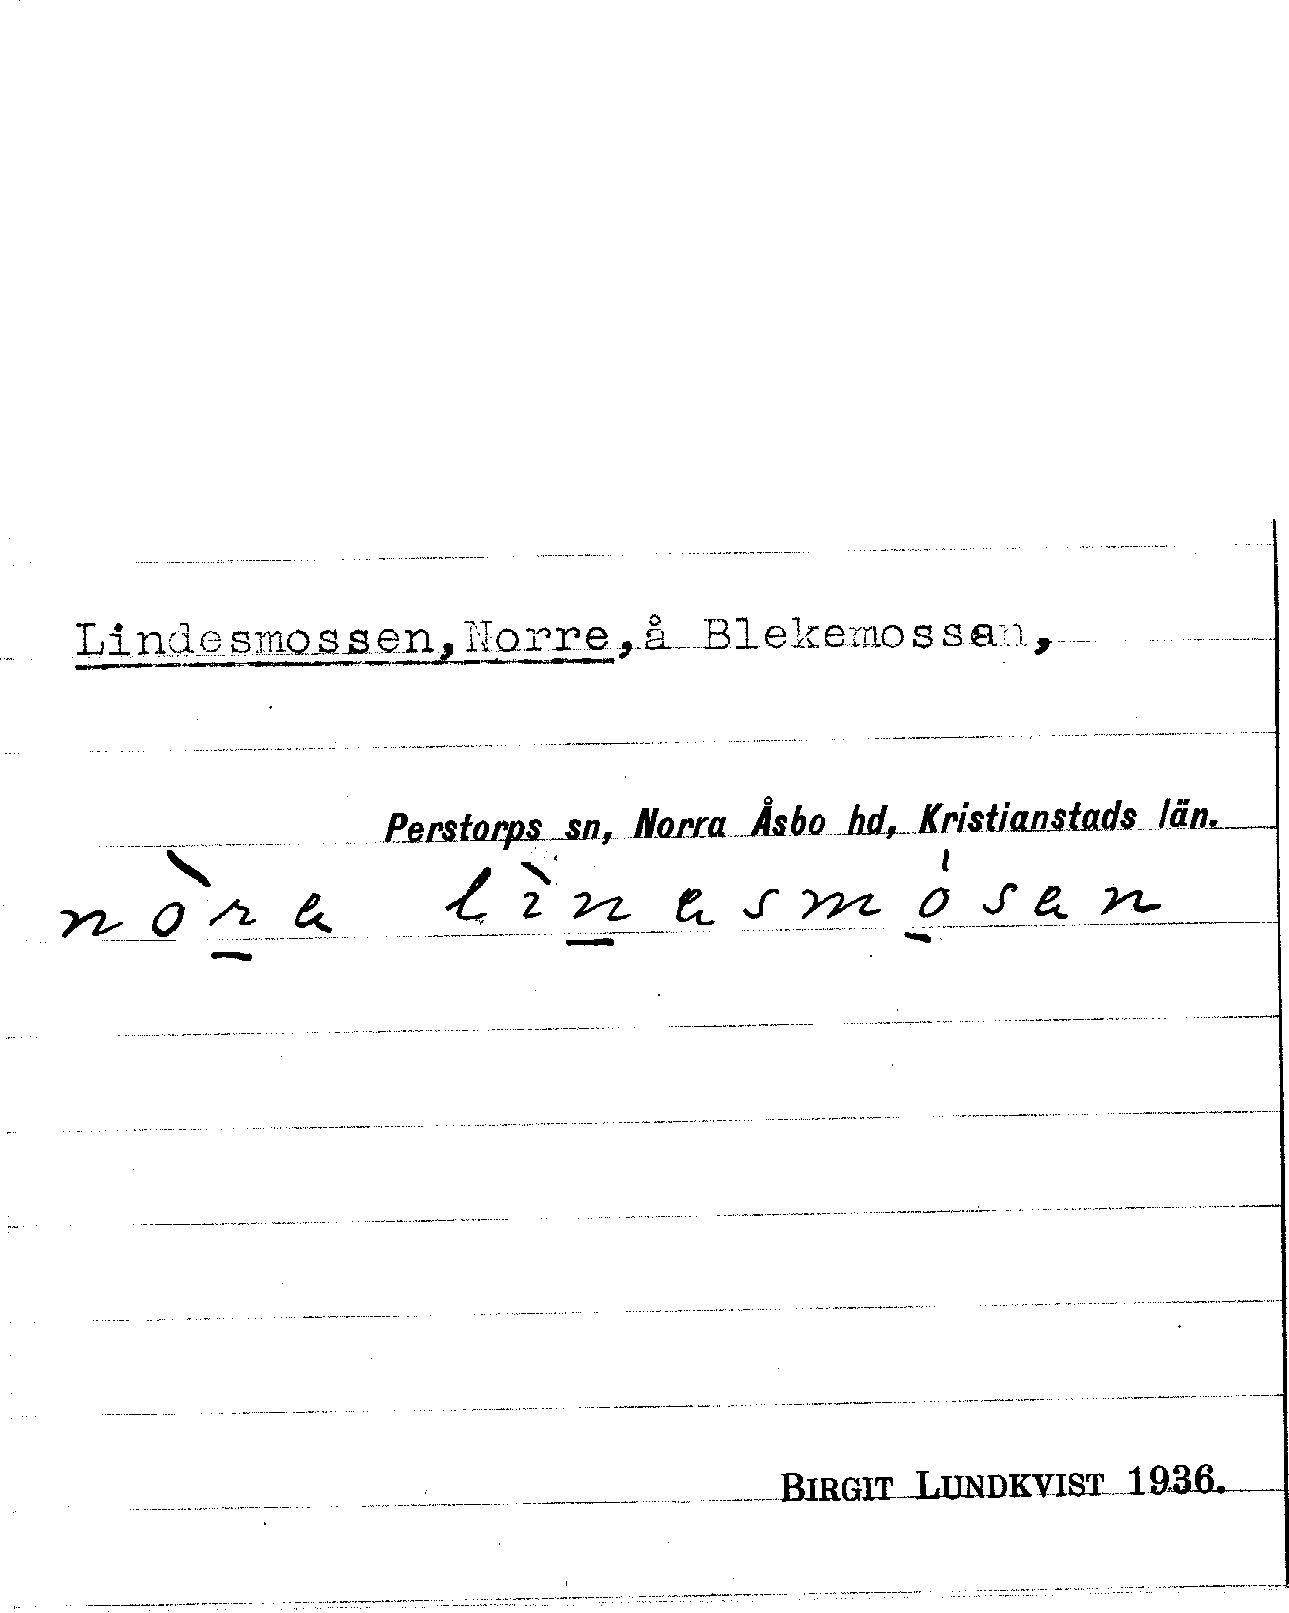 Lindesmossen, Norre, å Blekemossen,
Perstorps sn, Norra Åsbo hd, Kristianstads län.
nòr̲a lìn̲asmó̲san
BIRGIT LUNDKVIST 1936.